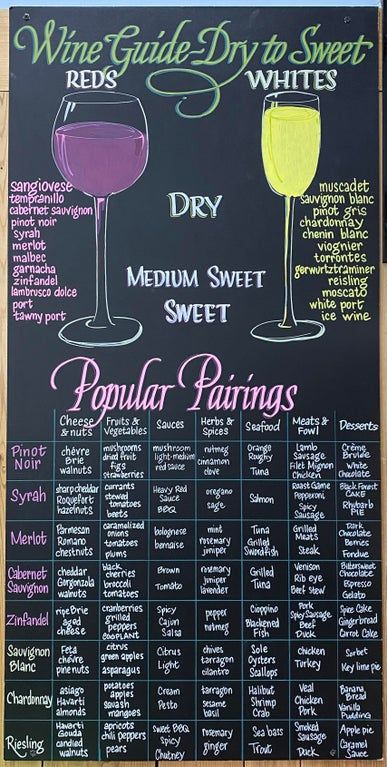 Wine Guide-Dry to Sweet
REDS
WHITES
sangiovese
tempranillo
cabernet sauvignon
pinot noir
syrah
merlot
malbec
garnacha
zinfandel
lambrusco dolce
port
tawny port
DRY
MEDIUM SWEET
SWEET
muscadet
sauvignon blanc
pinot gris
chardonnay
chenin blanc
viognier
torrontes
gerwurtztraminer
reisling
moscato
white port
ice wine
Popular Pairings
Cheese & nuts
Fruits & Vegetables
Sauces
Herbs & Spices
Seafood
Meats & Fowl
Desserts
Pinot Noir
chèvre
Brie
walnuts
mushrooms
dried fruit
figs
strawberries
mushroom
light-medium
red sauce
nutmeg
cinnamon
clove
Orange
Roughy
Tuna
Lamb
Sausage
Filet Mignon
Chicken
Crème
Brulée
White
Chocolate
Syrah
sharp cheddar
Roquefort
hazelnuts
currants
stewed
tomatoes
beets
Heavy Red
Sauce
BBQ
oregano
sage
Salmon
Roast Game
Pepperoni
Spicy
Sausage
Black Forest
CAKE
Rhubarb
PIE
Merlot
Parmesan
Romano
chestnuts
caramelized
onions
tomatoes
plums
bolognese
bernaise
mint
rosemary
juniper
Tuna
Grilled
Swordfish
Grilled
Meats
Steak
Dark
Chocolate
Berries
Fondue
Cabernet Sauvignon
cheddar
Gorgonzola
walnuts
black
cherries
broccoli
tomatoes
Brown
Tomato
rosemary
juniper
lavender
Grilled
Tuna
Venison
Rib eye
Beef Stew
Bittersweet
Chocolate
Espresso
Gelato
Zinfandel
ripe Brie
aged
cheese
cranberries
grilled
peppers
eggplant
Spicy
Cajun
Salsa
pepper
nutmeg
Cioppino
Blackened
Fish
Pork
Spicy Sausage
Beef
Duck
Spice Cake
Gingerbread
Carrot Cake
Sauvignon Blanc
Feta
chèvre
pine nuts
citrus
green apples
asparagus
Citrus
Light
chives
tarragon
cilantro
Sole
Oysters
Scallops
chicken
Turkey
Sorbet
Key lime pie
Chardonnay
asiago
Havarti
almonds
potatoes
apples
squash
mangoes
Cream
Pesto
tarragon
sesame
basil
Halibut
Shrimp
Crab
Veal
Chicken
Pork
Banana
Bread
Vanilla
Pudding
Riesling
Havarti
Gouda
candied
walnuts
apricots
chili peppers
pears
Sweet BBQ
Spicy
Chutney
rosemary
ginger
Sea bass
Trout
Smoked
Sausage
Duck
Apple pie
Caramel
Sauce